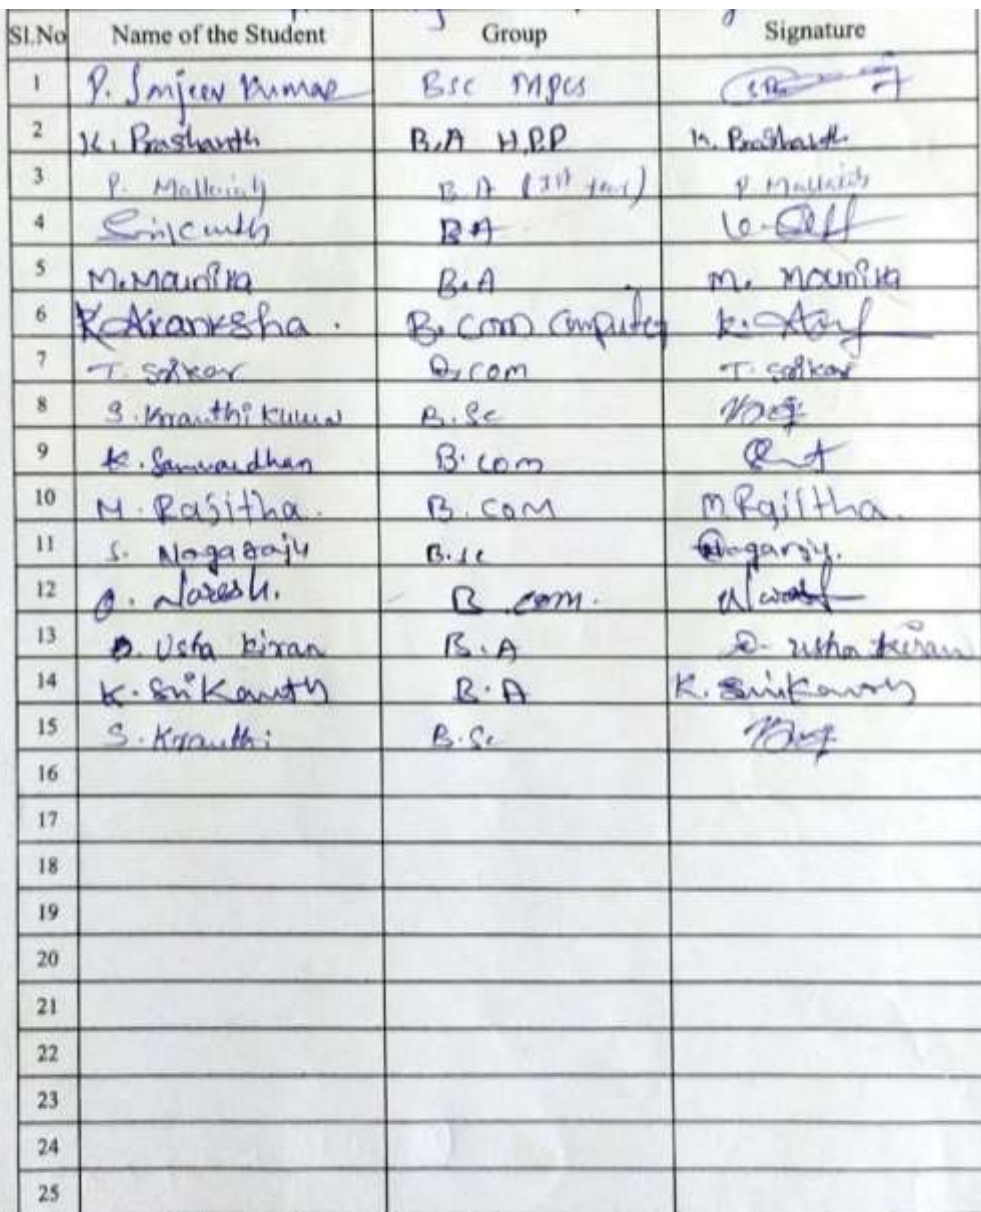 Sl.No Name of the Student Group Signature
1 P. Sanjeev Kumar BSC MPCS
2 K. Prashanth B.A H.P.P K. Prashanth
3 P. Mallaiah B.A P. Mallaiah
4 Srikanth BA
5 M. Mounika B.A M. Mounika
6 K. Akanksha. B.Com Computer K.
7 T. Srikar B.com T. Srikar
8 S. Kranthi Kumar B.Sc
9 K. Samvardhan B.com
10 M. Rajitha. B.COM M Rajitha.
11 S. Nagaraju B.Sc Nagaraju.
12 Naresh. B.com.
13 D. Usha Kiran B.A D. Usha Kiran
14 K. Srikanth B.A K. Srikanth
15 S. Kranthi B.Sc
16
17
18
19
20
21
22
23
24
25